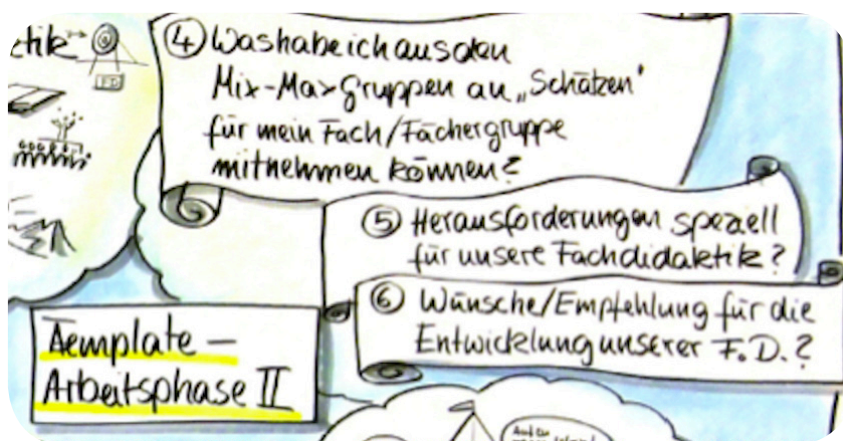 ④ Was habe ich aus den
Mix-Max Gruppen an „Schätzen"
für mein Fach/Fächergruppe
mitnehmen können?
⑤ Herausforderungen speziell
für unsere Fachdidaktik?
⑥ Wünsche/Empfehlung für die
Entwicklung unserer F.D.?
Template –
Arbeitsphase II